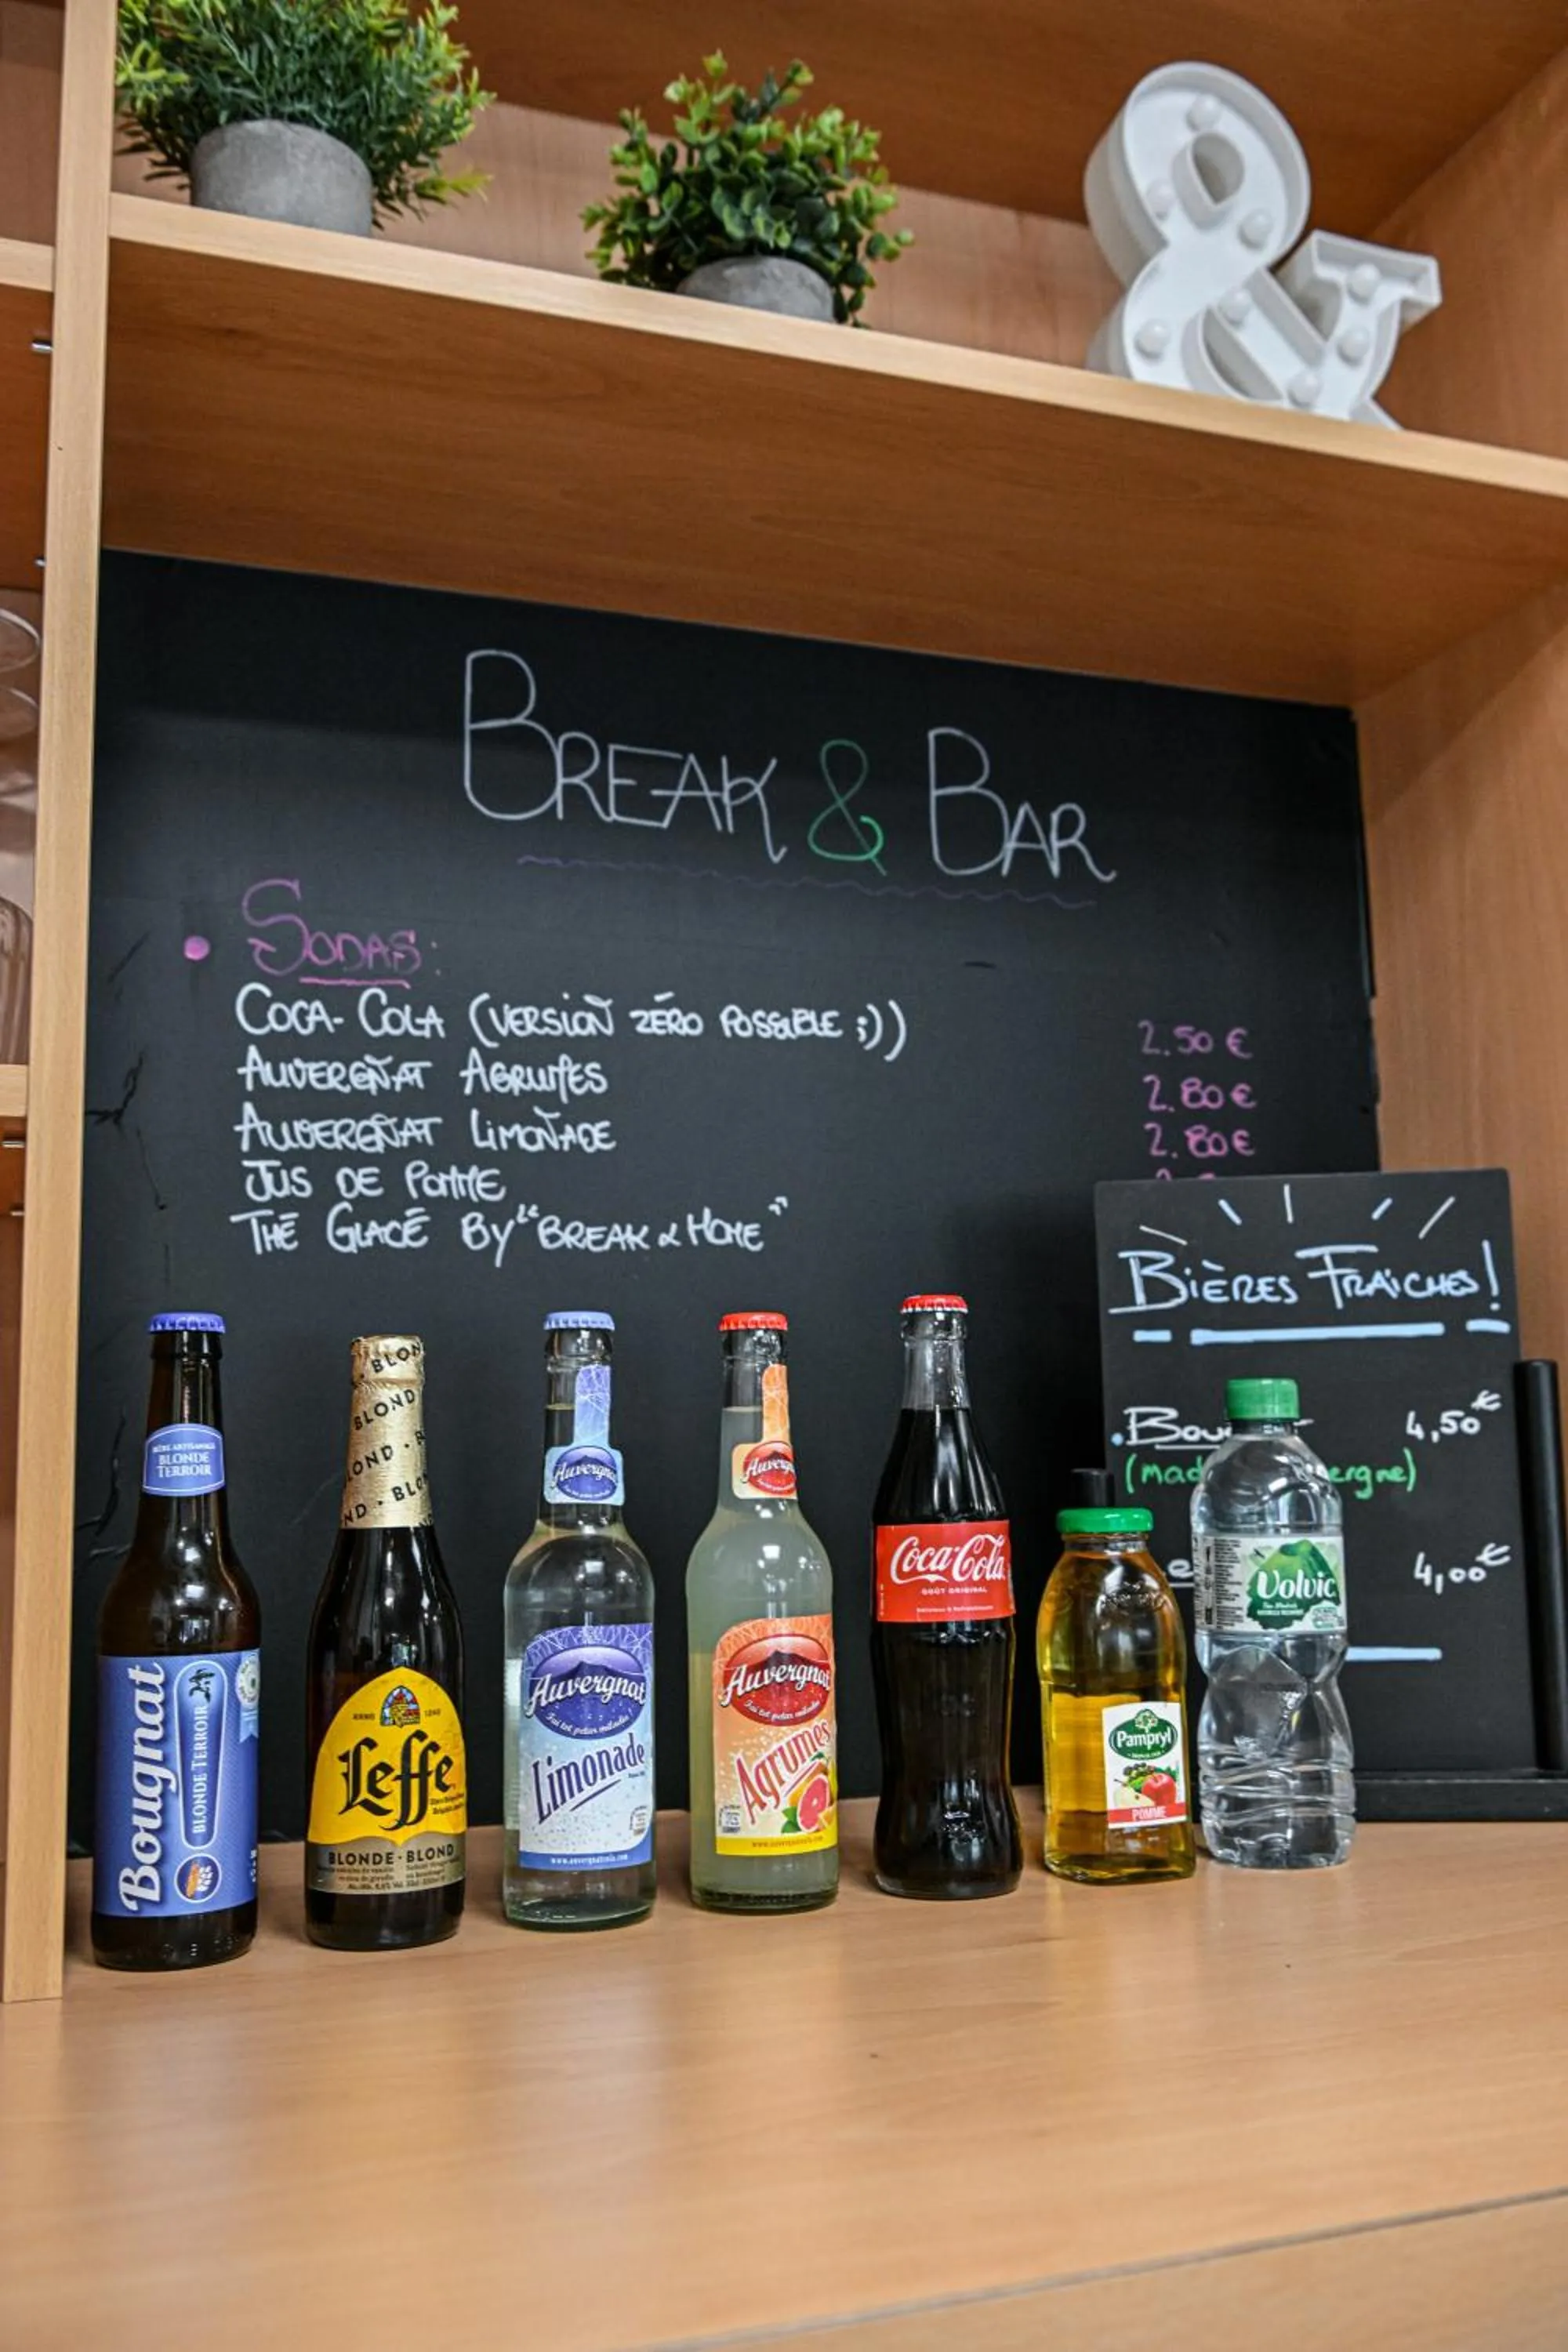 BREAK & BAR
SODAS:
COCA-COLA (VERSION ZÉRO POSSIBLE ;)) 2.50 €
AUVERGNAT AGRUMES 2.80 €
AUVERGNAT LIMONADE 2.80 €
JUS DE POMME
THÉ GLACÉ BY "BREAK & HOME"
BIÈRES FRAÎCHES!
4,50€
4,00€
BIÈRE ARTISANALE
BLONDE
TERROIR
Bougnat
BLONDE TERROIR
BLOND
BLOND
ANNO 1240
Leffe
BLONDE · BLOND
Auvergnat
Auvergnat
Limonade
www.auvergnatcola.com
Auvergnat
Auvergnat
Agrumes
www.auvergnatcola.com
Coca-Cola
GOÛT ORIGINAL
Pampryl
POMME
Volvic